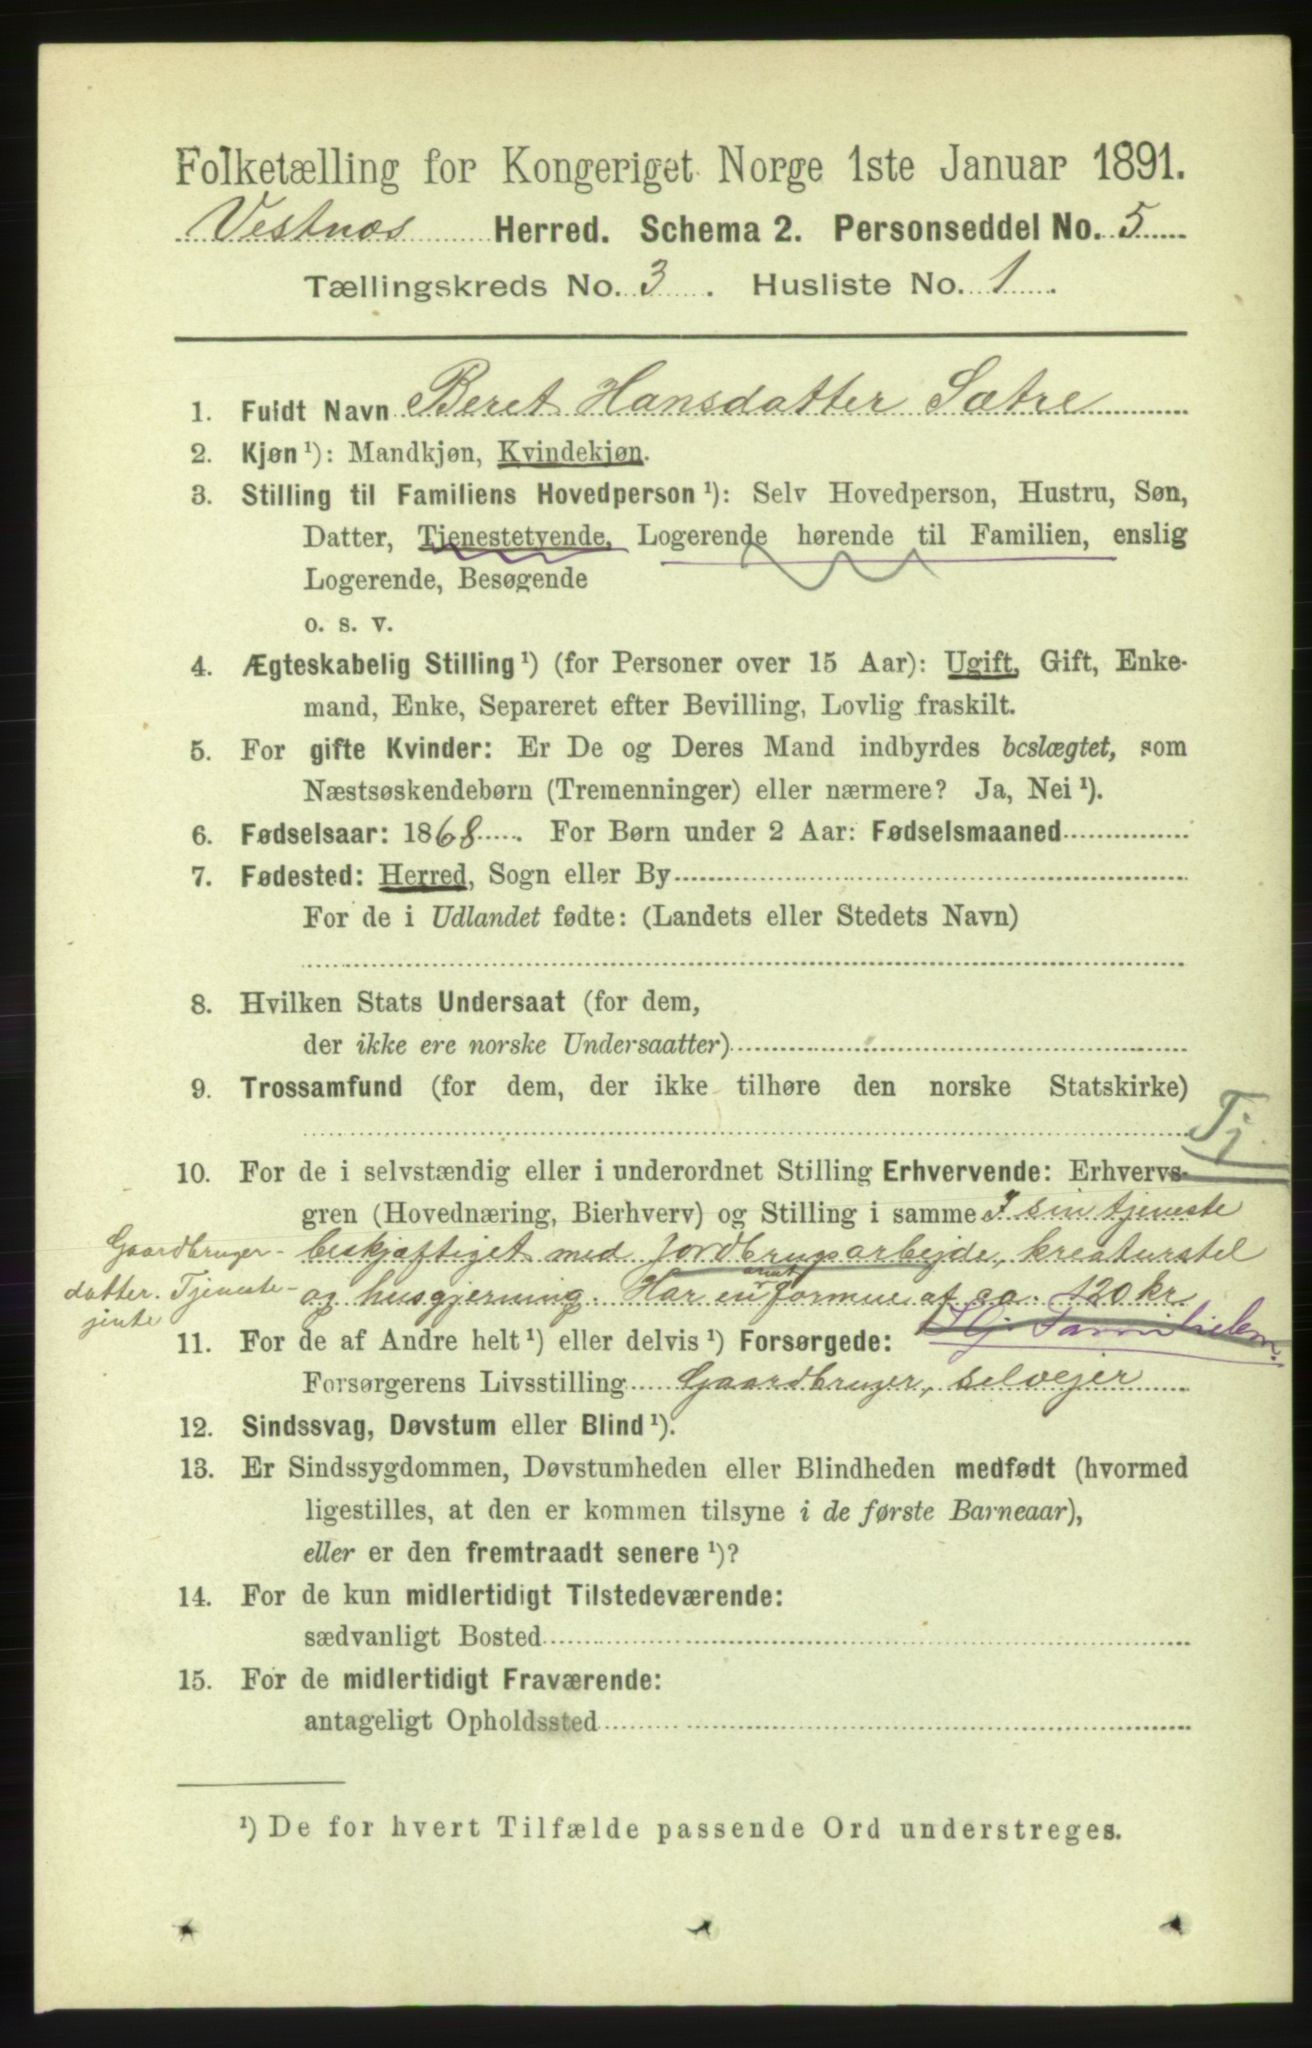 Folketælling for Kongeriget Norge 1ste Januar 1891.
Vestnæs Herred. Schema 2. Personseddel No. 5
Tællingskreds No. 3. Husliste No. 1.
1. Fuldt Navn Beret Hansdatter Sætre
2. Kjøn ¹): Mandkjøn, Kvindekjøn.
3. Stilling til Familiens Hovedperson ¹): Selv Hovedperson, Hustru, Søn,
Datter, Tjenestetyende, Logerende hørende til Familien, enslig
Logerende, Besøgende
o. s. v.
4. Ægteskabelig Stilling ¹) (for Personer over 15 Aar): Ugift, Gift, Enke-
mand, Enke, Separeret efter Bevilling, Lovlig fraskilt.
5. For gifte Kvinder: Er De og Deres Mand indbyrdes beslægtet, som
Næstsøskendebørn (Tremenninger) eller nærmere? Ja, Nei ¹).
6. Fødselsaar: 1868. For Børn under 2 Aar: Fødselsmaaned
7. Fødested: Herred, Sogn eller By
For de i Udlandet fødte: (Landets eller Stedets Navn)
8. Hvilken Stats Undersaat (for dem,
der ikke ere norske Undersaatter)
9. Trossamfund (for dem, der ikke tilhøre den norske Statskirke)
Tj.
10. For de i selvstændig eller i underordnet Stilling Erhvervende: Erhvervs-
gren (Hovednæring, Bierhverv) og Stilling i samme I sin tjeneste
Gaardbruger- beskjæftiget med jordbrugsarbejde, kreaturstel
datter. Tjeneste- og husgjerning. Har en formue af ca. 120 kr
jente
11. For de af Andre helt ¹) eller delvis ¹) Forsørgede:
Forsørgerens Livsstilling Gaardbruger, selvejer
12. Sindssvag, Døvstum eller Blind ¹).
13. Er Sindssygdommen, Døvstumheden eller Blindheden medfødt (hvormed
ligestilles, at den er kommen tilsyne i de første Barneaar),
eller er den fremtraadt senere ¹)?
14. For de kun midlertidigt Tilstedeværende:
sædvanligt Bosted
15. For de midlertidigt Fraværende:
antageligt Opholdssted
¹) De for hvert Tilfælde passende Ord understreges.